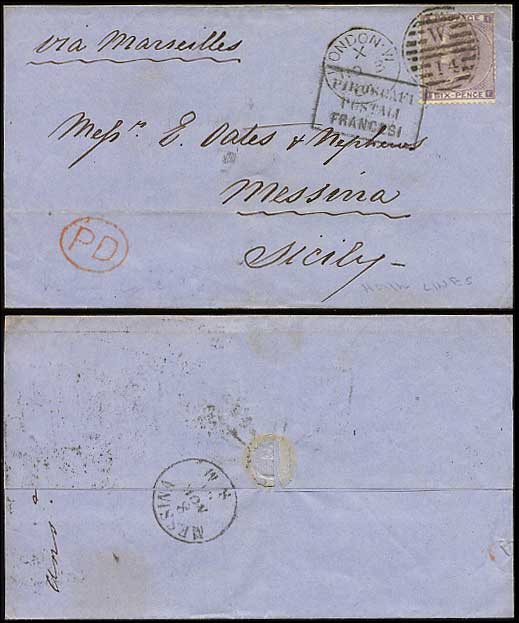 via Marseilles
LONDON·W
X
W
14
POSTAGE
SIX-PENCE
PIROSCAFI
POSTALI
FRANCESI
Messrs. E. Oates & Nephews
Messina
Sicily
PD
HAIR LINES
MESSINA
NOV
ans